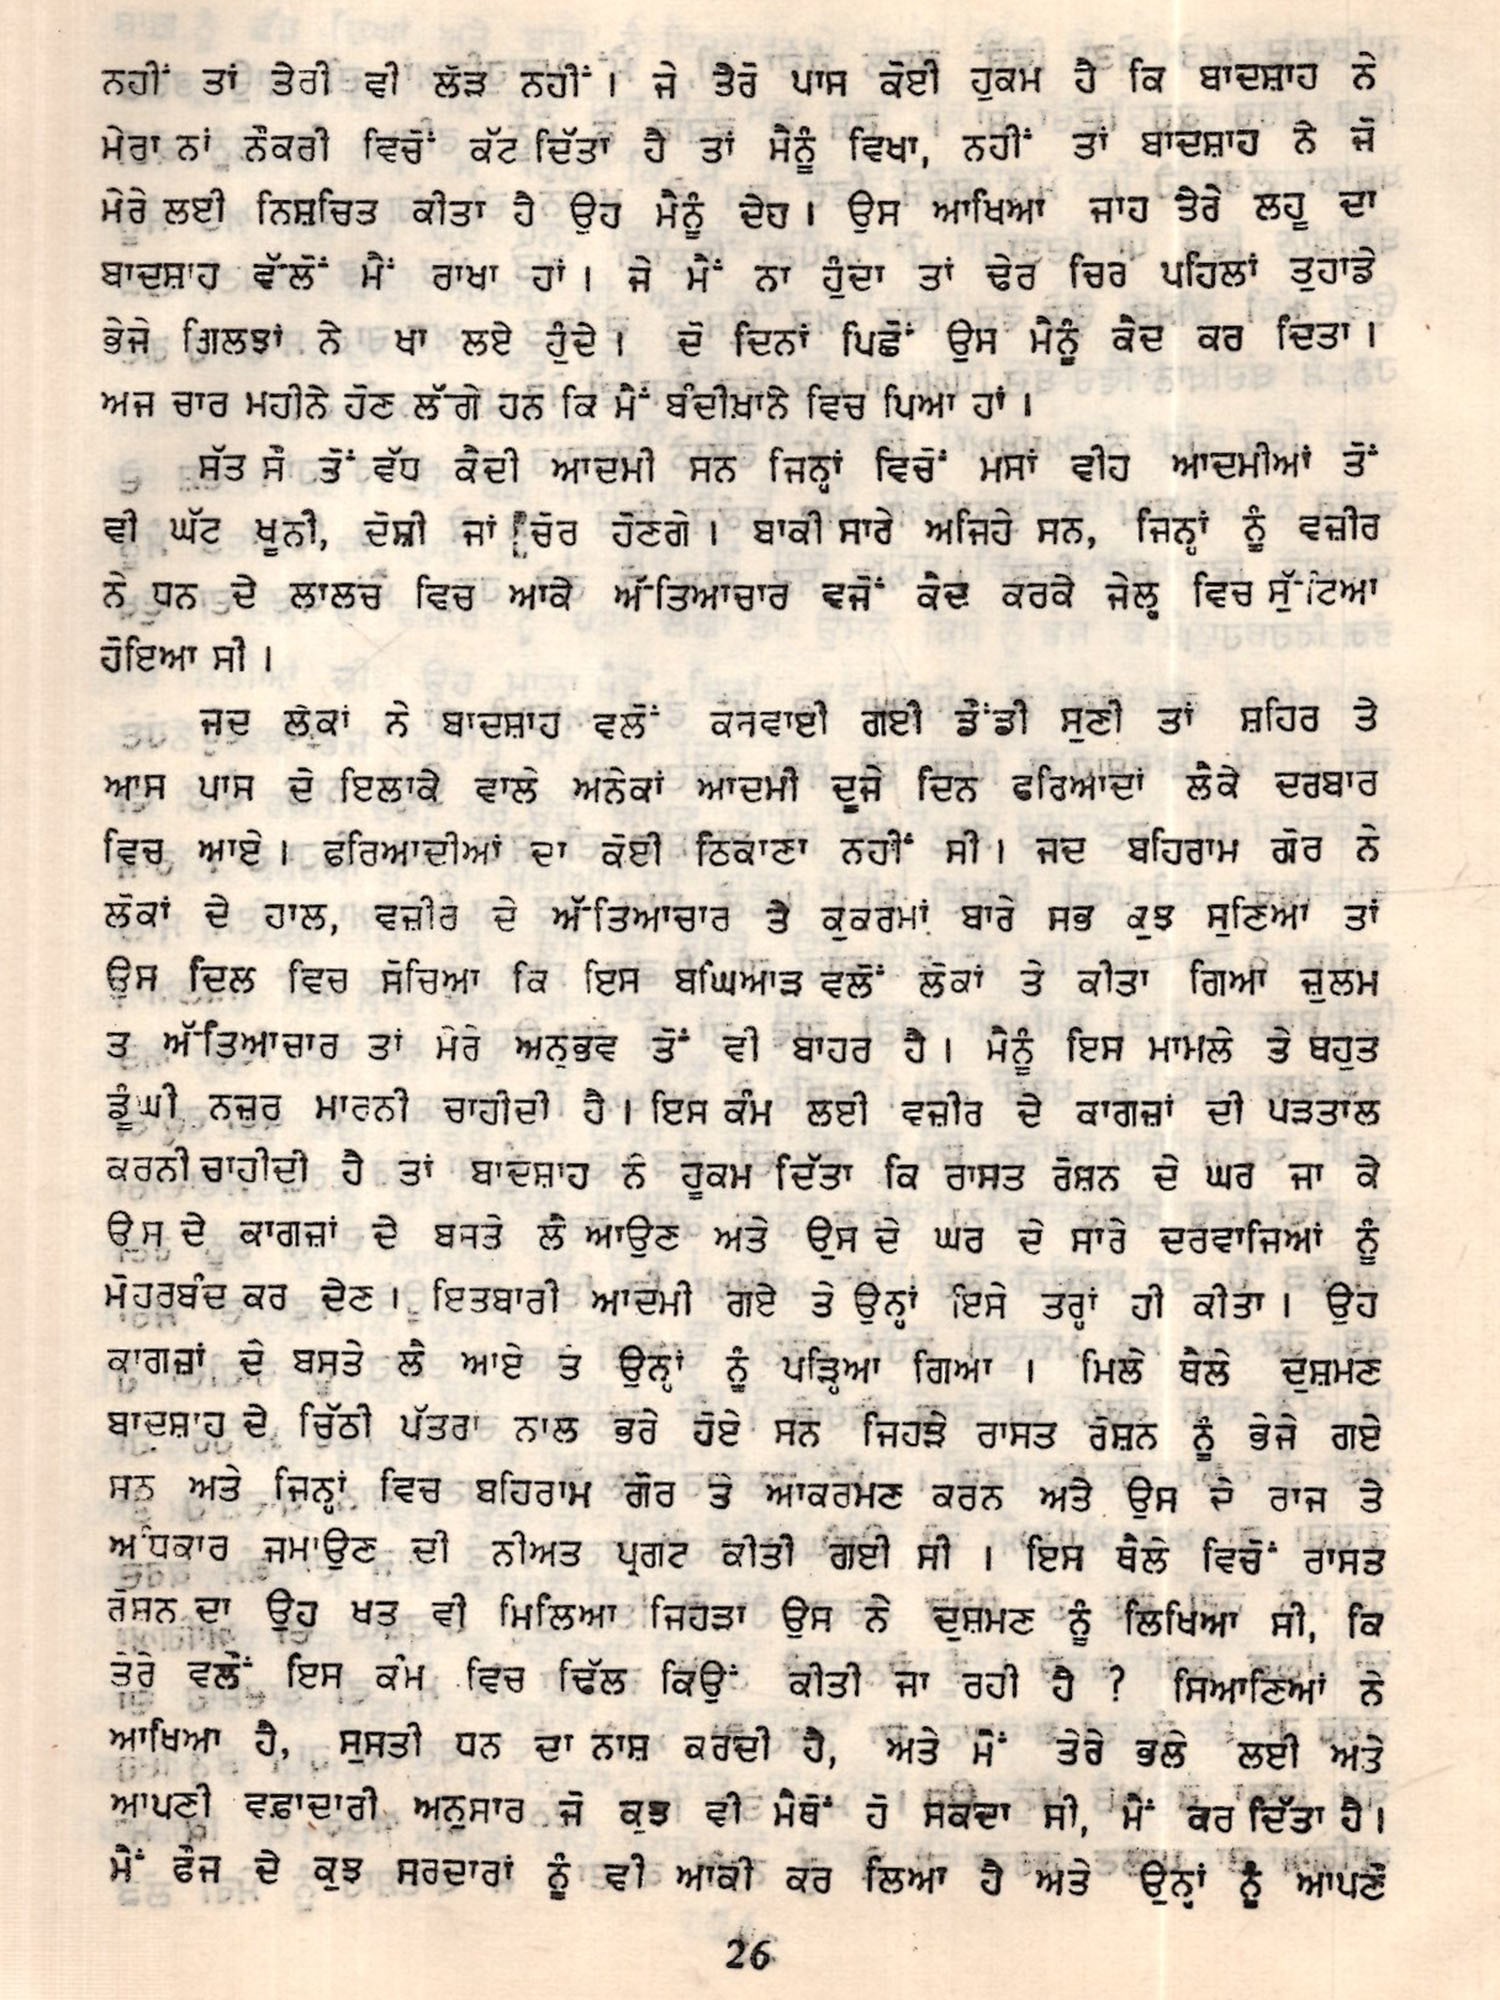 ਨਹੀਂ ਤਾਂ ਤੇਰੀ ਵੀ ਲੋੜ ਨਹੀਂ। ਜੇ ਤੇਰੇ ਪਾਸ ਕੋਈ ਹੁਕਮ ਹੈ ਕਿ ਬਾਦਸ਼ਾਹ ਨੇ
ਮੇਰਾ ਨਾਂ ਨੌਕਰੀ ਵਿਚੋਂ ਕੱਟ ਦਿੱਤਾ ਹੈ ਤਾਂ ਮੈਨੂੰ ਵਿਖਾ, ਨਹੀਂ ਤਾਂ ਬਾਦਸ਼ਾਹ ਨੇ ਜੋ
ਮੇਰੇ ਲਈ ਨਿਸ਼ਚਿਤ ਕੀਤਾ ਹੈ ਉਹ ਮੈਨੂੰ ਦੇਹ। ਉਸ ਆਖਿਆ ਜਾਹ ਤੇਰੇ ਲਹੂ ਦਾ
ਬਾਦਸ਼ਾਹ ਵੱਲੋਂ ਮੈਂ ਰਾਖਾ ਹਾਂ। ਜੇ ਮੈਂ ਨਾ ਹੁੰਦਾ ਤਾਂ ਢੇਰ ਚਿਰ ਪਹਿਲਾਂ ਤੁਹਾਡੇ
ਭੇਜੇ ਗਿਲਝਾਂ ਨੇ ਖਾ ਲਏ ਹੁੰਦੇ। ਦੋ ਦਿਨਾਂ ਪਿਛੋਂ ਉਸ ਮੈਨੂੰ ਕੈਦ ਕਰ ਦਿਤਾ।
ਅਜ ਚਾਰ ਮਹੀਨੇ ਹੋਣ ਲੱਗੇ ਹਨ ਕਿ ਮੈਂ ਬੰਦੀਖ਼ਾਨੇ ਵਿਚ ਪਿਆ ਹਾਂ।
ਸੱਤ ਸੌ ਤੋਂ ਵੱਧ ਕੈਦੀ ਆਦਮੀ ਸਨ ਜਿਨ੍ਹਾਂ ਵਿਚੋਂ ਮਸਾਂ ਵੀਹ ਆਦਮੀਆਂ ਤੋਂ
ਵੀ ਘੱਟ ਖੂਨੀ, ਦੋਸ਼ੀ ਜਾਂ ਚੋਰ ਹੋਣਗੇ। ਬਾਕੀ ਸਾਰੇ ਅਜਿਹੇ ਸਨ, ਜਿਨ੍ਹਾਂ ਨੂੰ ਵਜ਼ੀਰ
ਨੇ ਧਨ ਦੇ ਲਾਲਚ ਵਿਚ ਆਕੇ ਅੱਤਿਆਚਾਰ ਵਜੋਂ ਕੈਦ ਕਰਕੇ ਜੇਲ੍ਹ ਵਿਚ ਸੁੱਟਿਆ
ਹੋਇਆ ਸੀ।
ਜਦ ਲੋਕਾਂ ਨੇ ਬਾਦਸ਼ਾਹ ਵਲੋਂ ਕਰਵਾਈ ਗਈ ਡੌਂਡੀ ਸੁਣੀ ਤਾਂ ਸ਼ਹਿਰ ਤੇ
ਆਸ ਪਾਸ ਦੇ ਇਲਾਕੇ ਵਾਲੇ ਅਨੇਕਾਂ ਆਦਮੀ ਦੂਜੇ ਦਿਨ ਫਰਿਆਦਾਂ ਲੈਕੇ ਦਰਬਾਰ
ਵਿਚ ਆਏ। ਫਰਿਆਦੀਆਂ ਦਾ ਕੋਈ ਠਿਕਾਣਾ ਨਹੀਂ ਸੀ। ਜਦ ਬਹਿਰਾਮ ਗੋਰ ਨੇ
ਲੋਕਾਂ ਦੇ ਹਾਲ, ਵਜ਼ੀਰ ਦੇ ਅੱਤਿਆਚਾਰ ਤੇ ਕੁਕਰਮਾਂ ਬਾਰੇ ਸਭ ਕੁਝ ਸੁਣਿਆ ਤਾਂ
ਉਸ ਦਿਲ ਵਿਚ ਸੋਚਿਆ ਕਿ ਇਸ ਬਘਿਆੜ ਵਲੋਂ ਲੋਕਾਂ ਤੇ ਕੀਤਾ ਗਿਆ ਜ਼ੁਲਮ
ਤੇ ਅੱਤਿਆਚਾਰ ਤਾਂ ਮੇਰੇ ਅਨੁਭਵ ਤੋਂ ਵੀ ਬਾਹਰ ਹੈ। ਮੈਨੂੰ ਇਸ ਮਾਮਲੇ ਤੇ ਬਹੁਤ
ਡੂੰਘੀ ਨਜ਼ਰ ਮਾਰਨੀ ਚਾਹੀਦੀ ਹੈ। ਇਸ ਕੰਮ ਲਈ ਵਜ਼ੀਰ ਦੇ ਕਾਗਜ਼ਾਂ ਦੀ ਪੜਤਾਲ
ਕਰਨੀ ਚਾਹੀਦੀ ਹੈ ਤਾਂ ਬਾਦਸ਼ਾਹ ਨੇ ਹੁਕਮ ਦਿੱਤਾ ਕਿ ਰਾਸਤ ਰੋਸ਼ਨ ਦੇ ਘਰ ਜਾ ਕੇ
ਉਸ ਦੇ ਕਾਗਜ਼ਾਂ ਦੇ ਬਸਤੇ ਲੈ ਆਉਣ ਅਤੇ ਉਸ ਦੇ ਘਰ ਦੇ ਸਾਰੇ ਦਰਵਾਜਿਆਂ ਨੂੰ
ਮੋਹਰਬੰਦ ਕਰ ਦੇਣ। ਇਤਬਾਰੀ ਆਦਮੀ ਗਏ ਤੇ ਉਨ੍ਹਾਂ ਇਸੇ ਤਰ੍ਹਾਂ ਹੀ ਕੀਤਾ। ਉਹ
ਕਾਗਜ਼ਾਂ ਦੇ ਬਸਤੇ ਲੈ ਆਏ ਤੇ ਉਨ੍ਹਾਂ ਨੂੰ ਪੜ੍ਹਿਆ ਗਿਆ। ਮਿਲੇ ਥੈਲੇ ਦੁਸ਼ਮਣ
ਬਾਦਸ਼ਾਹ ਦੇ ਚਿੱਠੀ ਪੱਤਰਾਂ ਨਾਲ ਭਰੇ ਹੋਏ ਸਨ ਜਿਹੜੇ ਰਾਸਤ ਰੋਸ਼ਨ ਨੂੰ ਭੇਜੇ ਗਏ
ਸਨ ਅਤੇ ਜਿਨ੍ਹਾਂ ਵਿਚ ਬਹਿਰਾਮ ਗੋਰ ਤੇ ਆਕਰਮਣ ਕਰਨ ਅਤੇ ਉਸ ਦੇ ਰਾਜ ਤੇ
ਅਧਿਕਾਰ ਜਮਾਉਣ ਦੀ ਨੀਅਤ ਪ੍ਰਗਟ ਕੀਤੀ ਗਈ ਸੀ। ਇਸ ਥੈਲੇ ਵਿਚੋਂ ਰਾਸਤ
ਰੋਸ਼ਨ ਦਾ ਉਹ ਖਤ ਵੀ ਮਿਲਿਆ ਜਿਹੜਾ ਉਸ ਨੇ ਦੁਸ਼ਮਣ ਨੂੰ ਲਿਖਿਆ ਸੀ, ਕਿ
ਤੇਰੇ ਵਲੋਂ ਇਸ ਕੰਮ ਵਿਚ ਢਿੱਲ ਕਿਉਂ ਕੀਤੀ ਜਾ ਰਹੀ ਹੈ ? ਸਿਆਣਿਆਂ ਨੇ
ਆਖਿਆ ਹੈ, ਸੁਸਤੀ ਧਨ ਦਾ ਨਾਸ਼ ਕਰਦੀ ਹੈ, ਅਤੇ ਮੈਂ ਤੇਰੇ ਭਲੇ ਲਈ ਅਤੇ
ਆਪਣੀ ਵਫ਼ਾਦਾਰੀ ਅਨੁਸਾਰ ਜੋ ਕੁਝ ਵੀ ਮੈਥੋਂ ਹੋ ਸਕਦਾ ਸੀ, ਮੈਂ ਕਰ ਦਿੱਤਾ ਹੈ।
ਮੈਂ ਫੌਜ ਦੇ ਕੁਝ ਸਰਦਾਰਾਂ ਨੂੰ ਵੀ ਆਕੀ ਕਰ ਲਿਆ ਹੈ ਅਤੇ ਉਨ੍ਹਾਂ ਨੂੰ ਆਪਣੇ
26